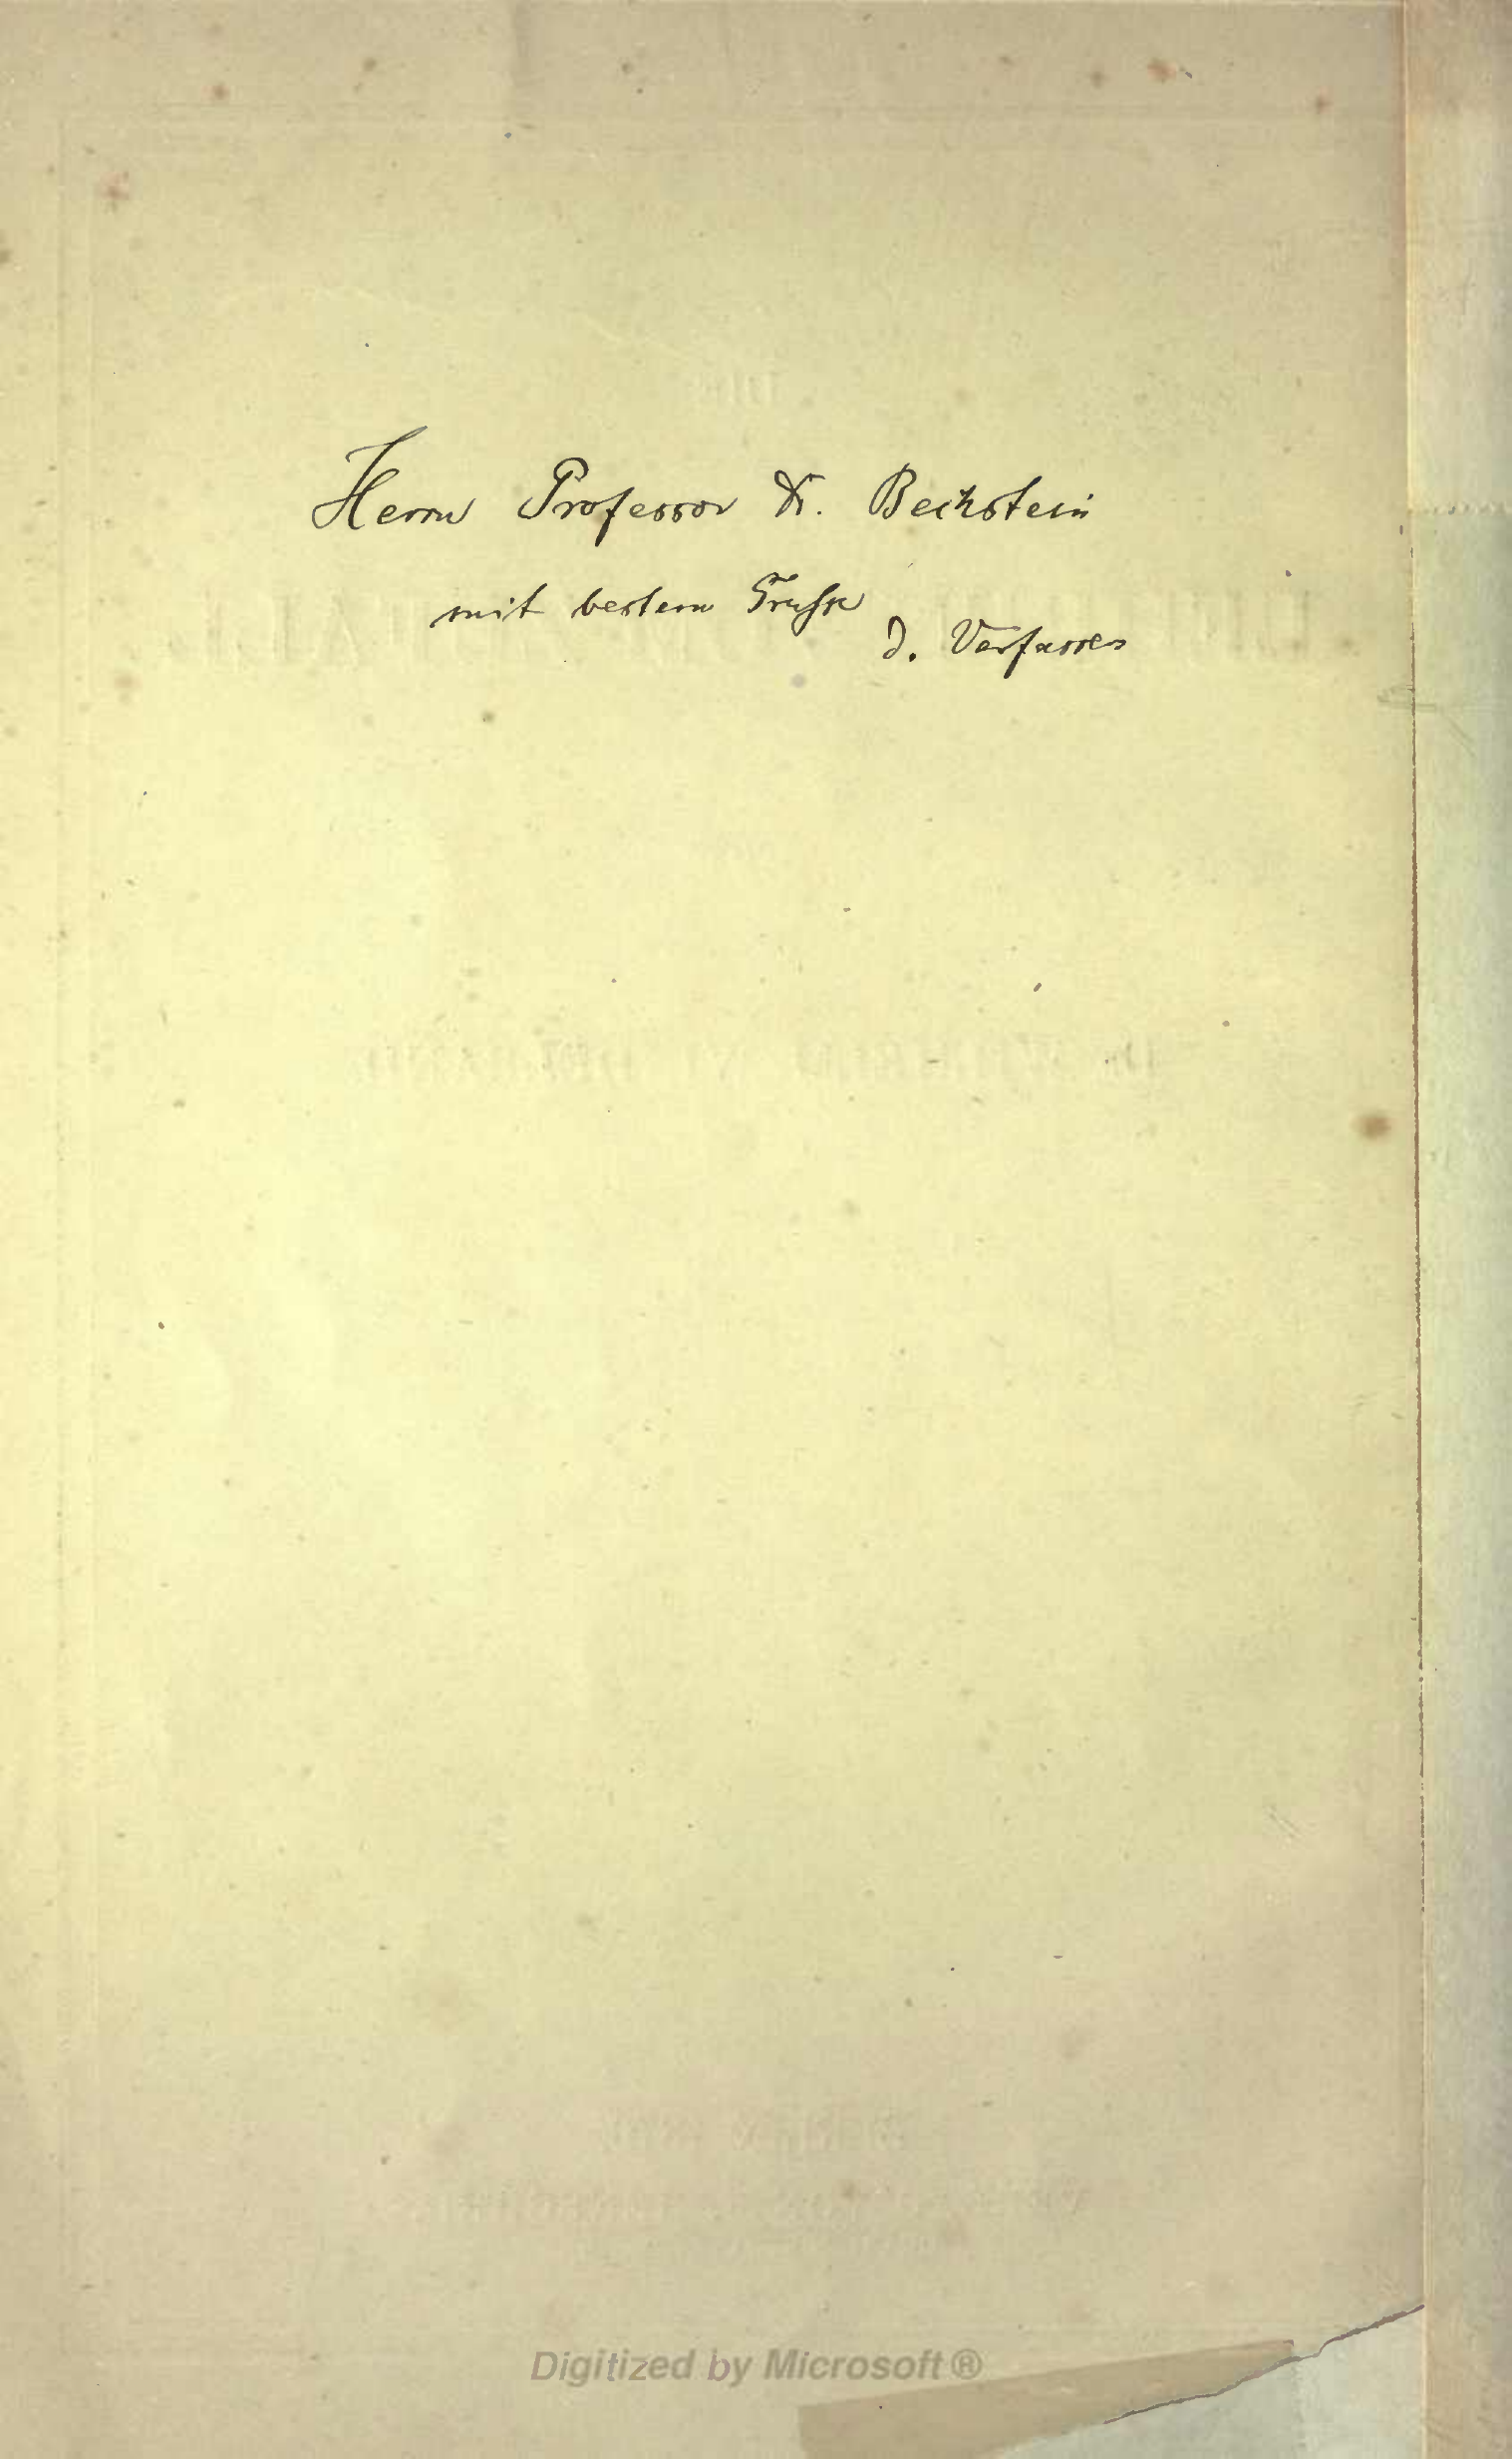 Herrn Professor Dr. Bechstein
mit bestem Gruße
D. Verfasser
Digitized by Microsoft®